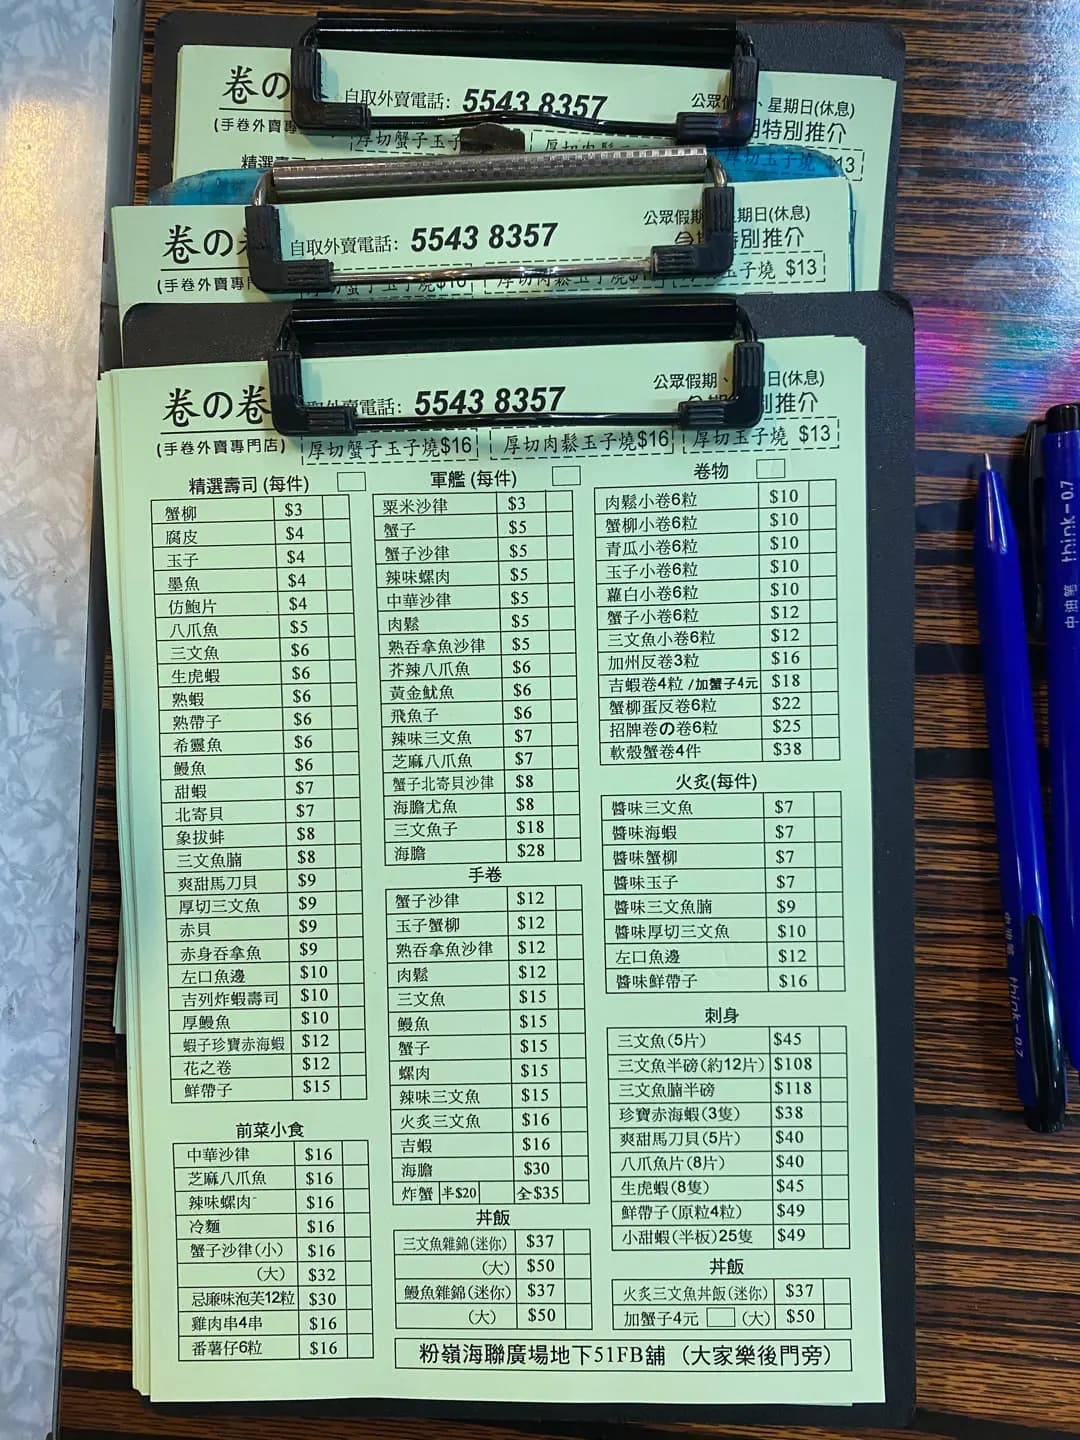 卷の
自取外賣電話: 5543 8357
公眾
、星期日(休息)
(手卷外賣專
期特別推介
厚切蟹子玉子
厚切玉子燒 $13
精選壽司
卷の卷
自取外賣電話: 5543 8357
公眾假期
星期日(休息)
(手卷外賣專門
特別推介
厚切蟹子玉子燒$16
厚切肉鬆玉子燒
玉子燒 $13
卷の卷
取外賣電話: 5543 8357
公眾假期、
日(休息)
別推介
(手卷外賣專門店)
厚切蟹子玉子燒$16
厚切肉鬆玉子燒$16
厚切玉子燒 $13
精選壽司 (每件)
蟹柳 $3
腐皮 $4
玉子 $4
墨魚 $4
仿鮑片 $4
八爪魚 $5
三文魚 $6
生虎蝦 $6
熟蝦 $6
熟帶子 $6
希靈魚 $6
鰻魚 $6
甜蝦 $7
北寄貝 $7
象拔蚌 $8
三文魚腩 $8
爽甜馬刀貝 $9
厚切三文魚 $9
赤貝 $9
赤身吞拿魚 $9
左口魚邊 $10
吉列炸蝦壽司 $10
厚鰻魚 $10
蝦子珍寶赤海蝦 $12
花之卷 $12
鮮帶子 $15
前菜小食
中華沙律 $16
芝麻八爪魚 $16
辣味螺肉 $16
冷麵 $16
蟹子沙律(小) $16
(大) $32
忌廉味泡芙12粒 $30
雞肉串4串 $16
番薯仔6粒 $16
軍艦 (每件)
粟米沙律 $3
蟹子 $5
蟹子沙律 $5
辣味螺肉 $5
中華沙律 $5
肉鬆 $5
熟吞拿魚沙律 $5
芥辣八爪魚 $6
黃金魷魚 $6
飛魚子 $6
辣味三文魚 $7
芝麻八爪魚 $7
蟹子北寄貝沙律 $8
海膽尤魚 $8
三文魚子 $18
海膽 $28
手卷
蟹子沙律 $12
玉子蟹柳 $12
熟吞拿魚沙律 $12
肉鬆 $12
三文魚 $15
鰻魚 $15
蟹子 $15
螺肉 $15
辣味三文魚 $15
火炙三文魚 $16
吉蝦 $16
海膽 $30
炸蟹 半$20 全$35
丼飯
三文魚雜錦(迷你) $37
(大) $50
鰻魚雜錦(迷你) $37
(大) $50
卷物
肉鬆小卷6粒 $10
蟹柳小卷6粒 $10
青瓜小卷6粒 $10
玉子小卷6粒 $10
蘿白小卷6粒 $10
蟹子小卷6粒 $12
三文魚小卷6粒 $12
加州反卷3粒 $16
吉蝦卷4粒 /加蟹子4元 $18
蟹柳蛋反卷6粒 $22
招牌卷の卷6粒 $25
軟殼蟹卷4件 $38
火炙(每件)
醬味三文魚 $7
醬味海蝦 $7
醬味蟹柳 $7
醬味玉子 $7
醬味三文魚腩 $9
醬味厚切三文魚 $10
左口魚邊 $12
醬味鮮帶子 $16
刺身
三文魚(5片) $45
三文魚半磅(約12片) $108
三文魚腩半磅 $118
珍寶赤海蝦(3隻) $38
爽甜馬刀貝(5片) $40
八爪魚片(8片) $40
生虎蝦(8隻) $45
鮮帶子(原粒4粒) $49
小甜蝦(半板)25隻 $49
丼飯
火炙三文魚丼飯(迷你) $37
加蟹子4元 (大) $50
粉嶺海聯廣場地下51FB舖 (大家樂後門旁)
中油笔 think-0.7
中油笔 think-0.7